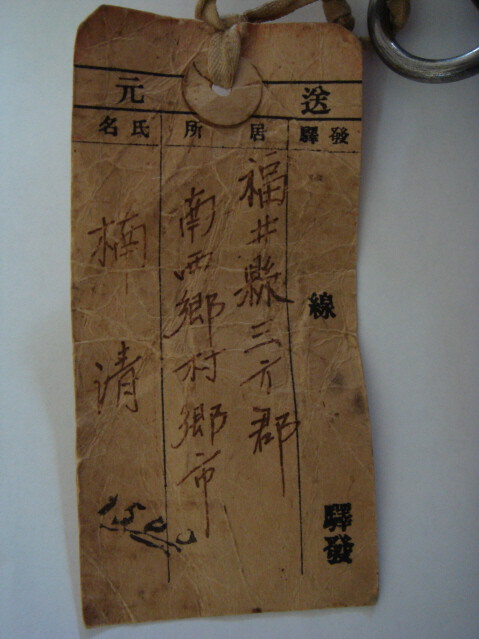 送元
發驛
線
驛發
居所
福井縣三方郡
南西鄉村鄉市
氏名
楠清